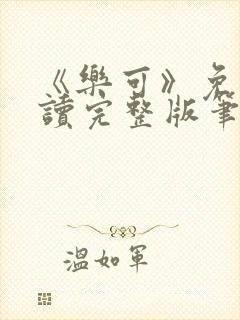 《樂可》免
讀完整版筆
溫如軍